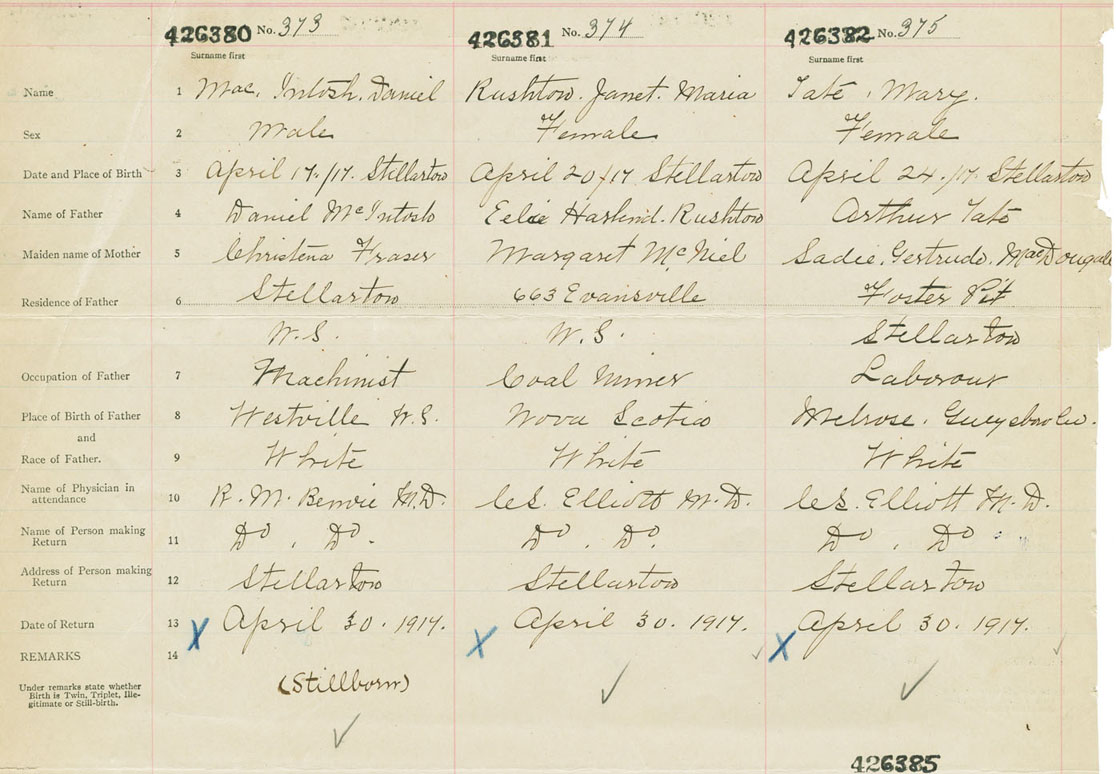 426380 No. 373 426381 No. 374 426382 No. 375
Surname first Surname first Surname first
Name 1 Mac. Intosh. Daniel Rushton. Janet. Maria Tate. Mary.
Sex 2 Male Female Female
Date and Place of Birth 3 April 17./17. Stellarton April 20/17 Stellarton April 24./17. Stellarton
Name of Father 4 Daniel McIntosh Rushton Arthur Tate
Maiden name of Mother 5 Christena Fraser Margaret McNiel Sadie. Gertrude. MacDougall
Residence of Father 6 Stellarton 663 Evansville Foster Pit
N.S. N.S. Stellarton
Occupation of Father 7 Machinist Coal Miner Labourer
Place of Birth of Father 8 Westville N.S. Nova Scotia Melrose. Guysboro Co.
and
Race of Father. 9 White White White
Name of Physician in attendance 10 R. M. Benvie M.D. C.S. Elliott M.D. C.S. Elliott M.D.
Name of Person making Return 11 Do. Do. Do. Do. Do. Do
Address of Person making Return 12 Stellarton Stellarton Stellarton
Date of Return 13 X April 30. 1917. X April 30. 1917. X April 30. 1917.
REMARKS 14
Under remarks state whether Birth is Twin, Triplet, Ille-
gitimate or Still-birth.
(Stillborn)
426385